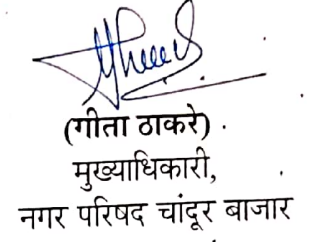 (गीता ठाकरे)
मुख्याधिकारी,
नगर परिषद चांदूर बाजार